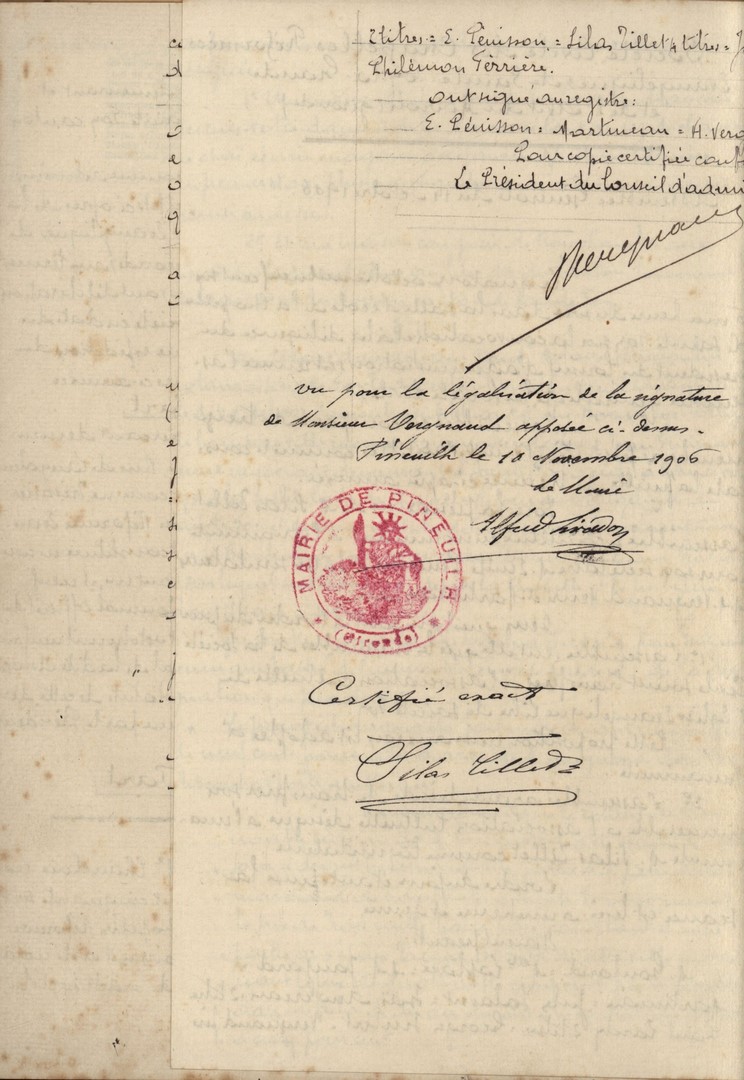 2 titres = E. Pénisson = Silas Tillet 4 titres =
Philémon Ferrière.
ont signé au registre:
E. Pénisson = Martineau = H. Verg
Pour copie certifiée conf
Le Président du Conseil d'admi
Vergnaud
vu pour la légalisation de la signature
de Monsieur Vergnaud apposée ci-dessus.
Pineuilh le 10 Novembre 1906
Le Maire
MAIRIE DE PINEUILH
(Gironde)
Certifié exact
Silas Tillet